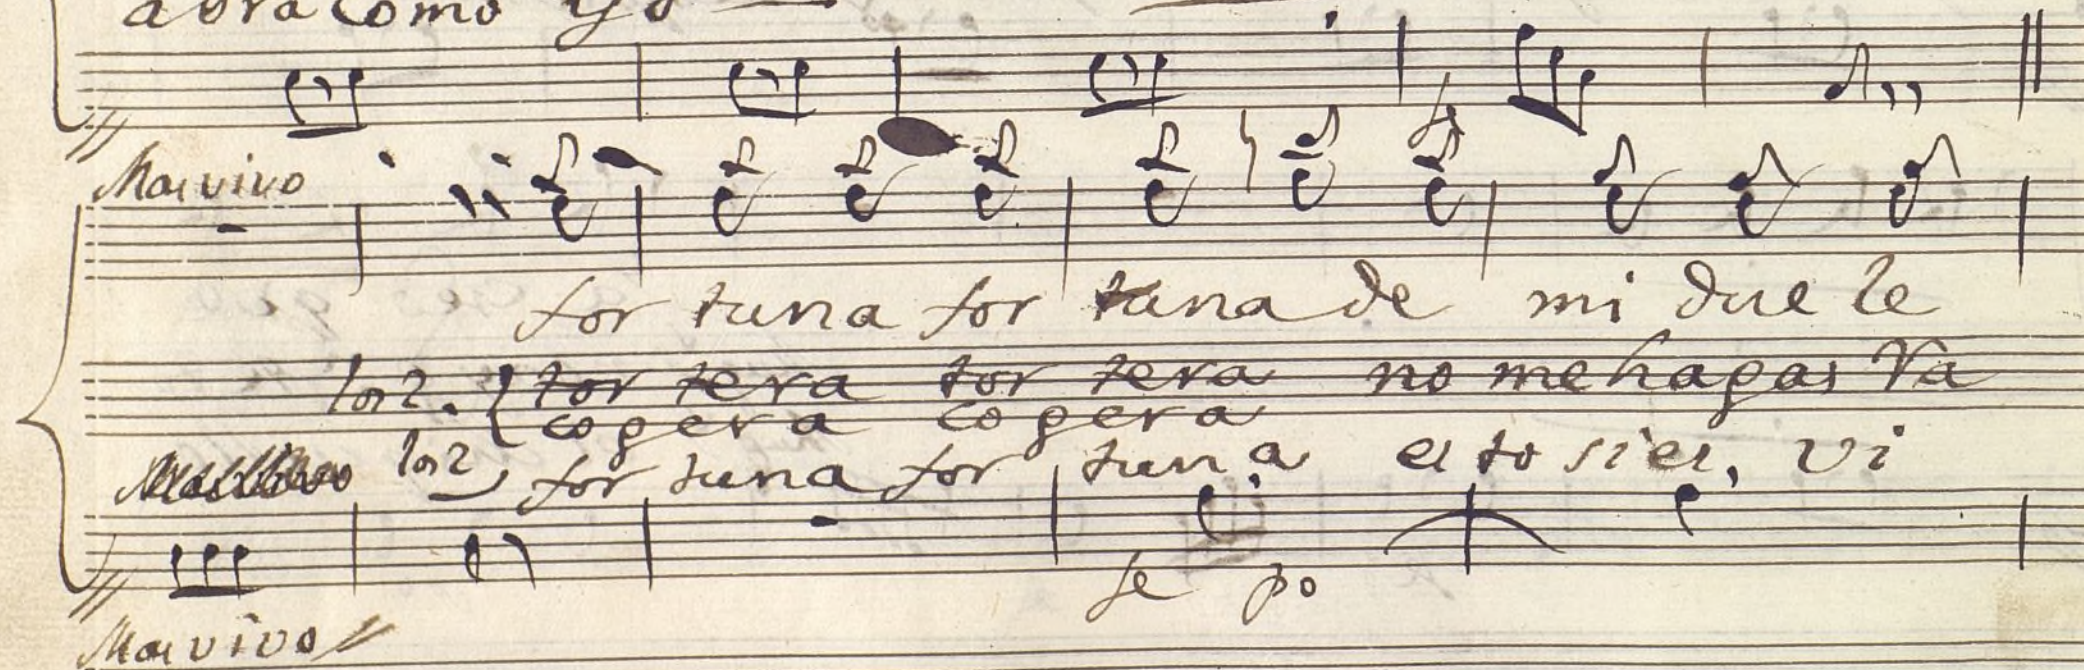 abra como yo
Mas vivo
for tuna for tuna de mi due le
los 2. tor tera tor tera no me hagas Va
co gera co gera
los 2 for tuna for tuna esto si es, vi
fe po
Mas vivo